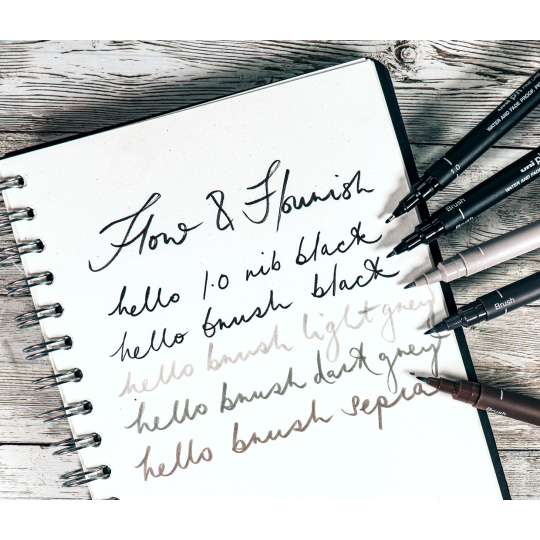 Flow & Flourish
hello 1.0 nib black
hello brush black
hello brush light grey
hello brush dark grey
hello brush sepia
WATER AND FADE PROOF
1.0
uni pin
WATER AND FADE
Brush
Brush
Brush